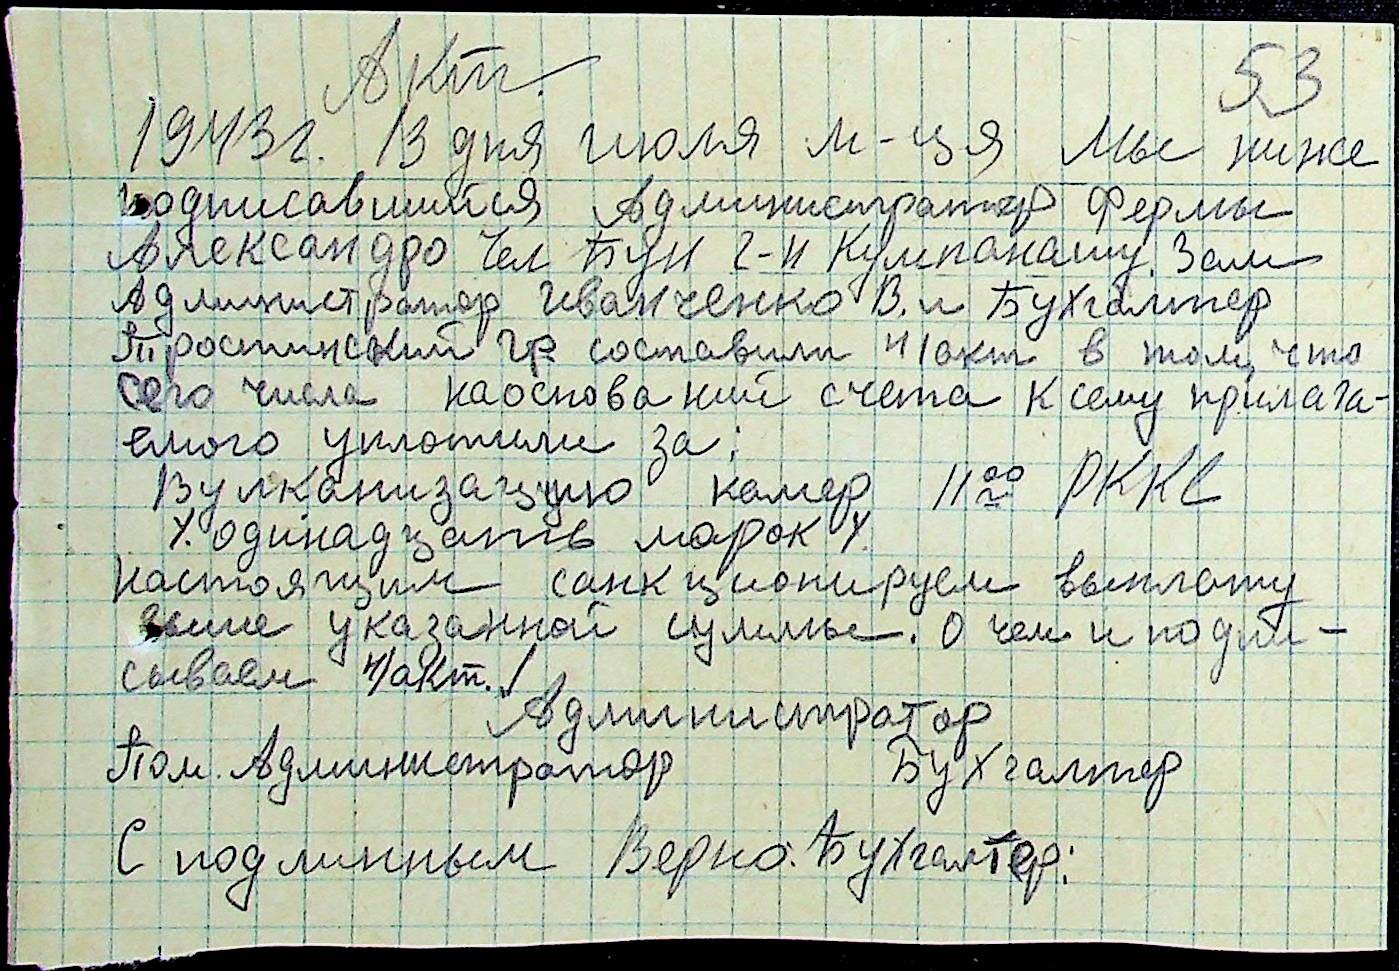 Акт. 53
1943 г. 13 дня июля м-ця Мы ниже
подписавшийся Администратор Фермы
Александро Чел Бун г-н Кумпанашу, Зам
Администратор Иванченко В. и Бухгалтер
Тростинский Гр составили н/акт в том, что
сего числа наоснований счета к сему прилага-
емого уплотили за:
Вулканизаццию камер 11 00 РККС
/. одинадцать марок /.
настоящим санкционируем выплату
выше указанной суммы. О чем и подпи-
сываем н/акт. /
Администратор
Пом. Администратор Бухгалтер
С подлинным Верно: Бухгалтер: